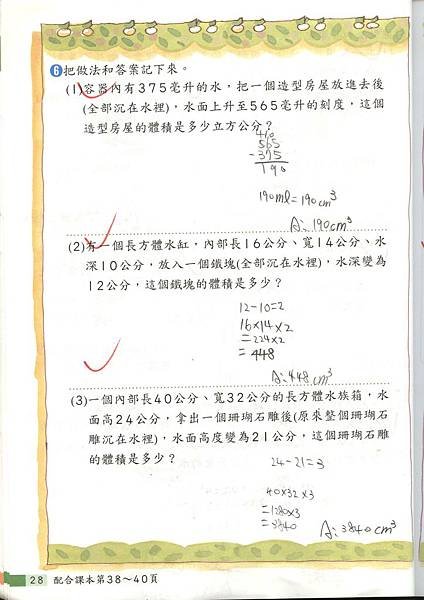 6 把做法和答案記下來。
(1)容器內有375毫升的水，把一個造型房屋放進去後
(全部沉在水裡)，水面上升至565毫升的刻度，這個
造型房屋的體積是多少立方公分？
565
-375
190
190ml=190cm³
A:190cm³
(2)有一個長方體水缸，內部長16公分、寬14公分、水
深10公分，放入一個鐵塊(全部沉在水裡)，水深變為
12公分，這個鐵塊的體積是多少？
12-10=2
16×14×2
=224×2
=448
A:448cm³
(3)一個內部長40公分、寬32公分的長方體水族箱，水
面高24公分，拿出一個珊瑚石雕後(原來整個珊瑚石
雕沉在水裡)，水面高度變為21公分，這個珊瑚石雕
的體積是多少？
24-21=3
40×32×3
=1280×3
=3840
A:3840cm³
28 配合課本第38～40頁